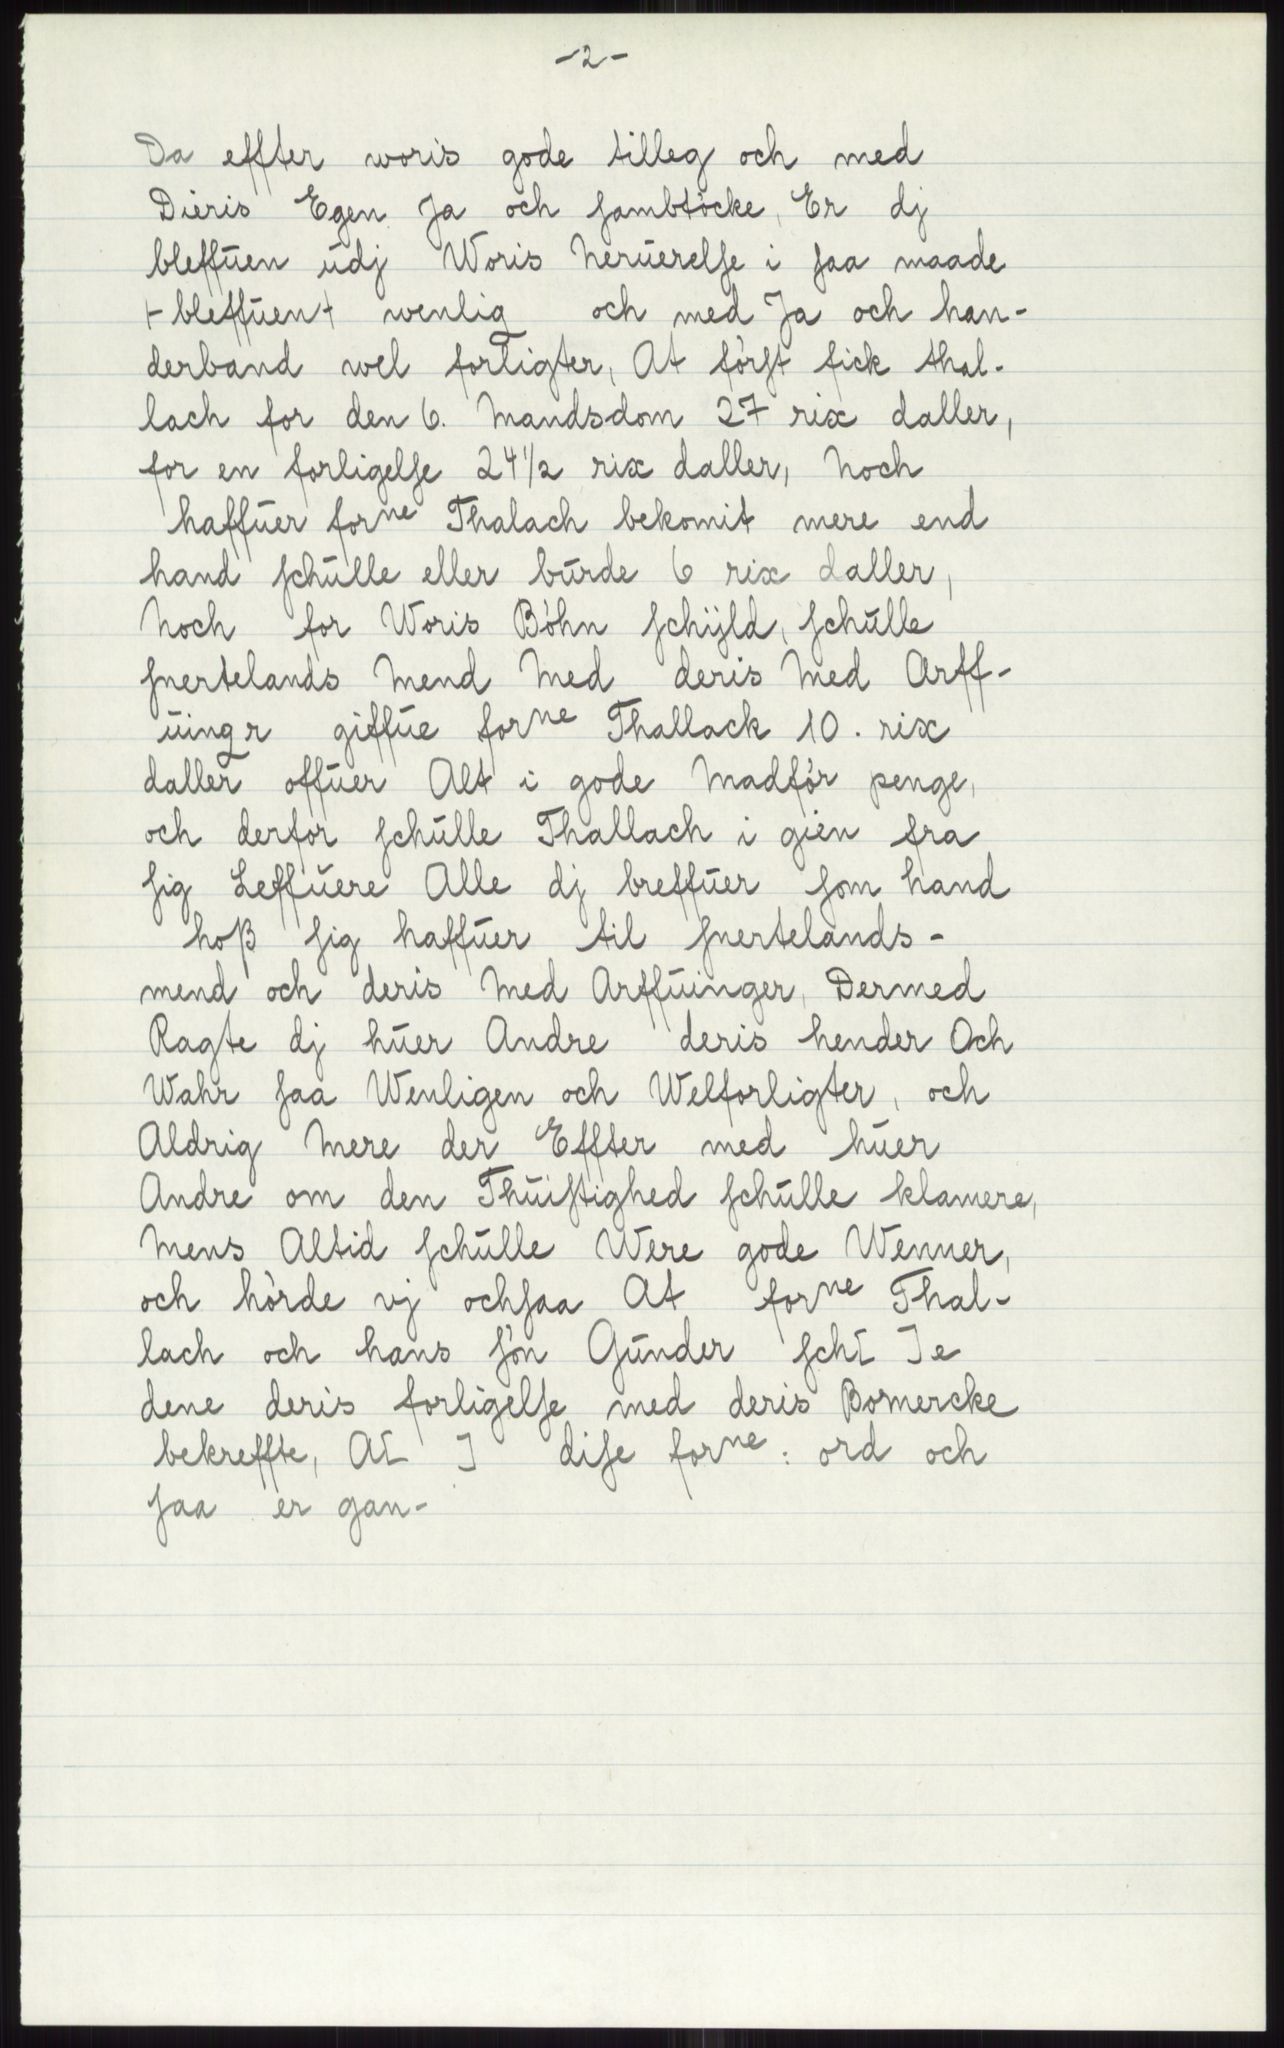 -2-
Da effter woris gode tilleg och med
Dieris Egen Ja och sambtöcke, Er dj
bleffuen udj Woris Neruerelse i saa maade
⊢bleffuen⊣ wenlig och med Ja och han-
derband wel forligter, At först fick thal-
lach for den 6. Mandsdom 27 rix daller,
for en forligelse 24 1/2 rix daller, Noch
haffuer forne Thalach bekomit mere end
hand schulle eller burde 6 rix daller,
Noch for Woris Böhn schÿld, schulle
snertelands Mend Med deris Med Arff-
uingr giffue forne Thallack 10. rix
daller offuer Alt i gode Madför penge,
och derfor schulle Thallach i gien fra
sig Leffuere Alle dj breffuer som hand
hoß sig haffuer til snertelands-
mend och deris Med Arffuinger, Dermed
Ragte dj huer Andre deris hender Och
Wahr saa Wenligen och Welforligter, och
Aldrig Mere der Effter med huer
Andre om den Thuistighed schulle klamere,
Mens Altid schulle Were gode Wenner,
och hörde vj ochsaa At forne Thal-
lach och hans sön Gunder sch[ ]e
dene deris forligelse med deris Bomercke
bekreffte, A[ ] dise forne: ord och
saa er gan-